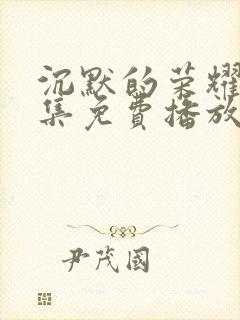 沉默的荣耀
集免費播放
尹茂國